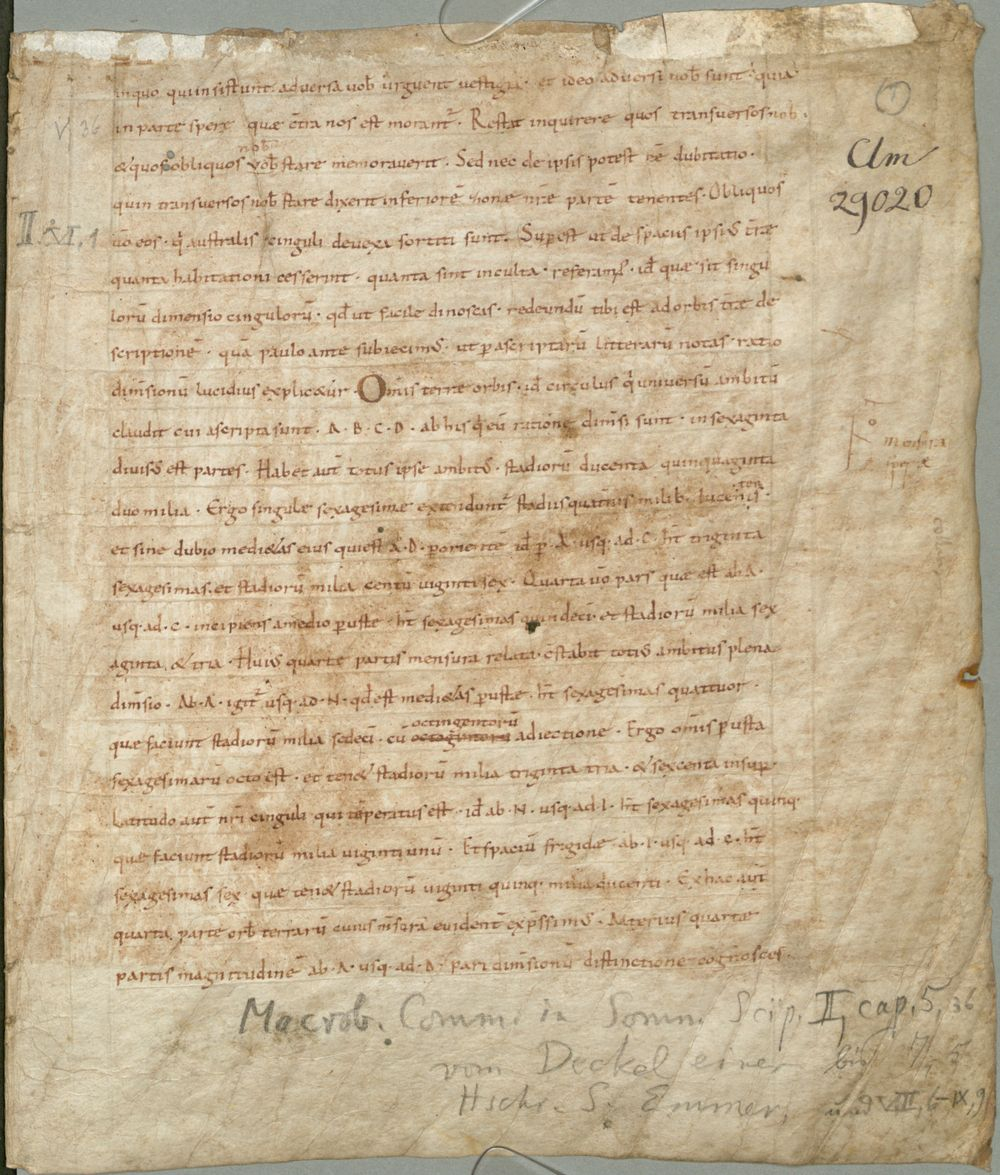 inquo quiinsistunt adversa vob̄ urguent vestigia · et ideo adversi vob̄ sunt · quia
in parte sperę quae c̄tra nos est morant᷑ · Restat inquirere quos transversos nob̄ ·
nob̄
& quos obliquos vob̄ stare memoraverit · Sed nec de ipsis potest e᷑e dubitatio ·
quin transversos nob̄ stare dixerit inferiorē zonae nr̄ae partē tenentes · Obliquos
v̄o eos · q̄ australis cinguli devexa sortiti sunt · Sup̄est ut de spaciis ipsi᷒ t̄rae
quanta habitationi cesserint · quanta sint inculta · referam᷒ · id᷒ quae sit singu
lorū dimensio cingulorū · qđ ut facile dinoscis · redeundū tibi est ad orbis t̄rae de
scriptionē · quā paulo ante subiecim᷒ · ut p̄ ascriptarū litterarū notas ratio
dim̄sionū lucidius explic&ur · Om̄is terrę orbis · id᷒ circulus q̄ universū ambitū
claudit cui ascripta sunt · A · B · C · D · ab his q̄ eū ratione dim̄si sunt · in sexaginta
divis᷒ est partes · Habet aut̄ totus ipse ambit᷒ · stadiorū ducenta quinquaginta
duo milia · Ergo singulę sexagesimę extendunt᷑ stadiis quat̄nis milib · ducenis ·
et sine dubio medi&as eius quę est A · D · p̄ oriente id᷒ p̄ · A · usq · ad · C · ħt triginta
sexagesimas · et stadiorū milia centū viginti sex · Quarta v̄o pars quae est ab A ·
usq · ad · C · incipiens a medio p̄ustę · ħt sexagesimas quindeci · et stadiorū milia sex
aginta · & tria · Hui᷒ quartę partis mensura relata c̄stabit toti᷒ ambitus plena
dim̄sio · Ab · A · igit᷑ usq · ad · N · qđ est medi&as p̄ustę · ħt sexagesimas quattuor ·
octingentorū
quae faciunt stadiorū milia sedeci · cū octogintorū adiectione · Ergo om̄is p̄usta
sexagesimarū octo est · et ten& stadiorū milia triginta tria · & sexcenta insup̄ ·
Latitudo aut̄ nr̄i cinguli qui tēperatus est · id᷒ ab · N · usq · ad · I · ħt sexagesimas quinq ·
quae faciunt stadiorū milia viginti unū · Et spaciū frigidę ab · I · usq · ad · C · ħt
sexagesimas sex · quae ten& stadiorū viginti quinq · milia ducenti · Ex hac aut̄
quarta parte orb̄ terrarū cuius m̄surā evident᷑ exp̄ssim᷒ · Alterius quartae
partis magnitudinē ab · A · usq · ad · D · pari dim̄sionū distinctione cognosces ·
1
Clm
29020
V, 36
II. VI, 1
mensura
sperę
Macrob. Comm. in Somn. Scip. II, cap. 5, 36
vom Deckel einer bis 7, 5
Hschr. S. Emmer. und VIII, 6–IX, 9